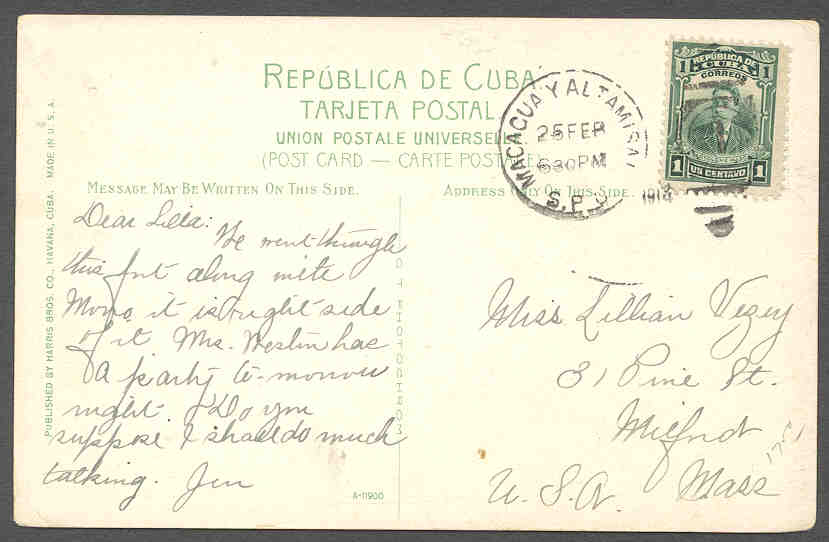 REPÚBLICA DE CUBA
TARJETA POSTAL
UNION POSTALE UNIVERSEL
(POST CARD — CARTE POSTALE
MESSAGE MAY BE WRITTEN ON THIS SIDE.
ADDRESS ONLY ON THIS SIDE.
REPÚBLICA DE
CUBA
CORREOS
1 1
1 UN CENTAVO 1
MACAGUA Y ALTAMISAL
25 FEB
630 PM
S.P.
191
PUBLISHED BY HARRIS BROS. CO., HAVANA, CUBA. MADE IN U.S.A.
Dear Lilla:
We went through
this fort along with
Morro it is right side
of it Mrs. Weston has
a party to-morrow
night. Do you
suppose I shall do much
talking. Jen
PHOTOCHROM
A-11900
Miss Lillian Vezey
31 Pine St.
Milford
Mass
U.S.A.